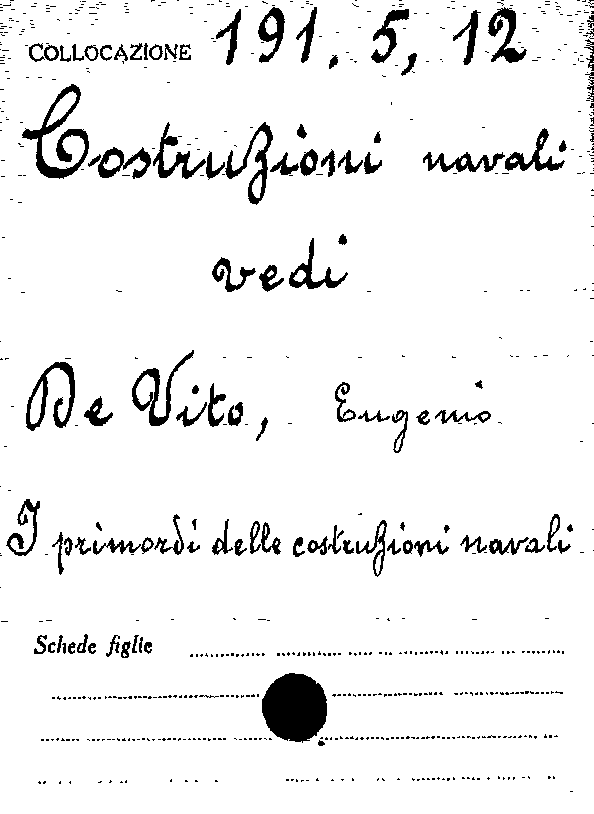 COLLOCAZIONE 191. 5, 12
Costruzioni navali
vedi
De Vito, Eugenio
I primordi delle costruzioni navali
Schede figlie